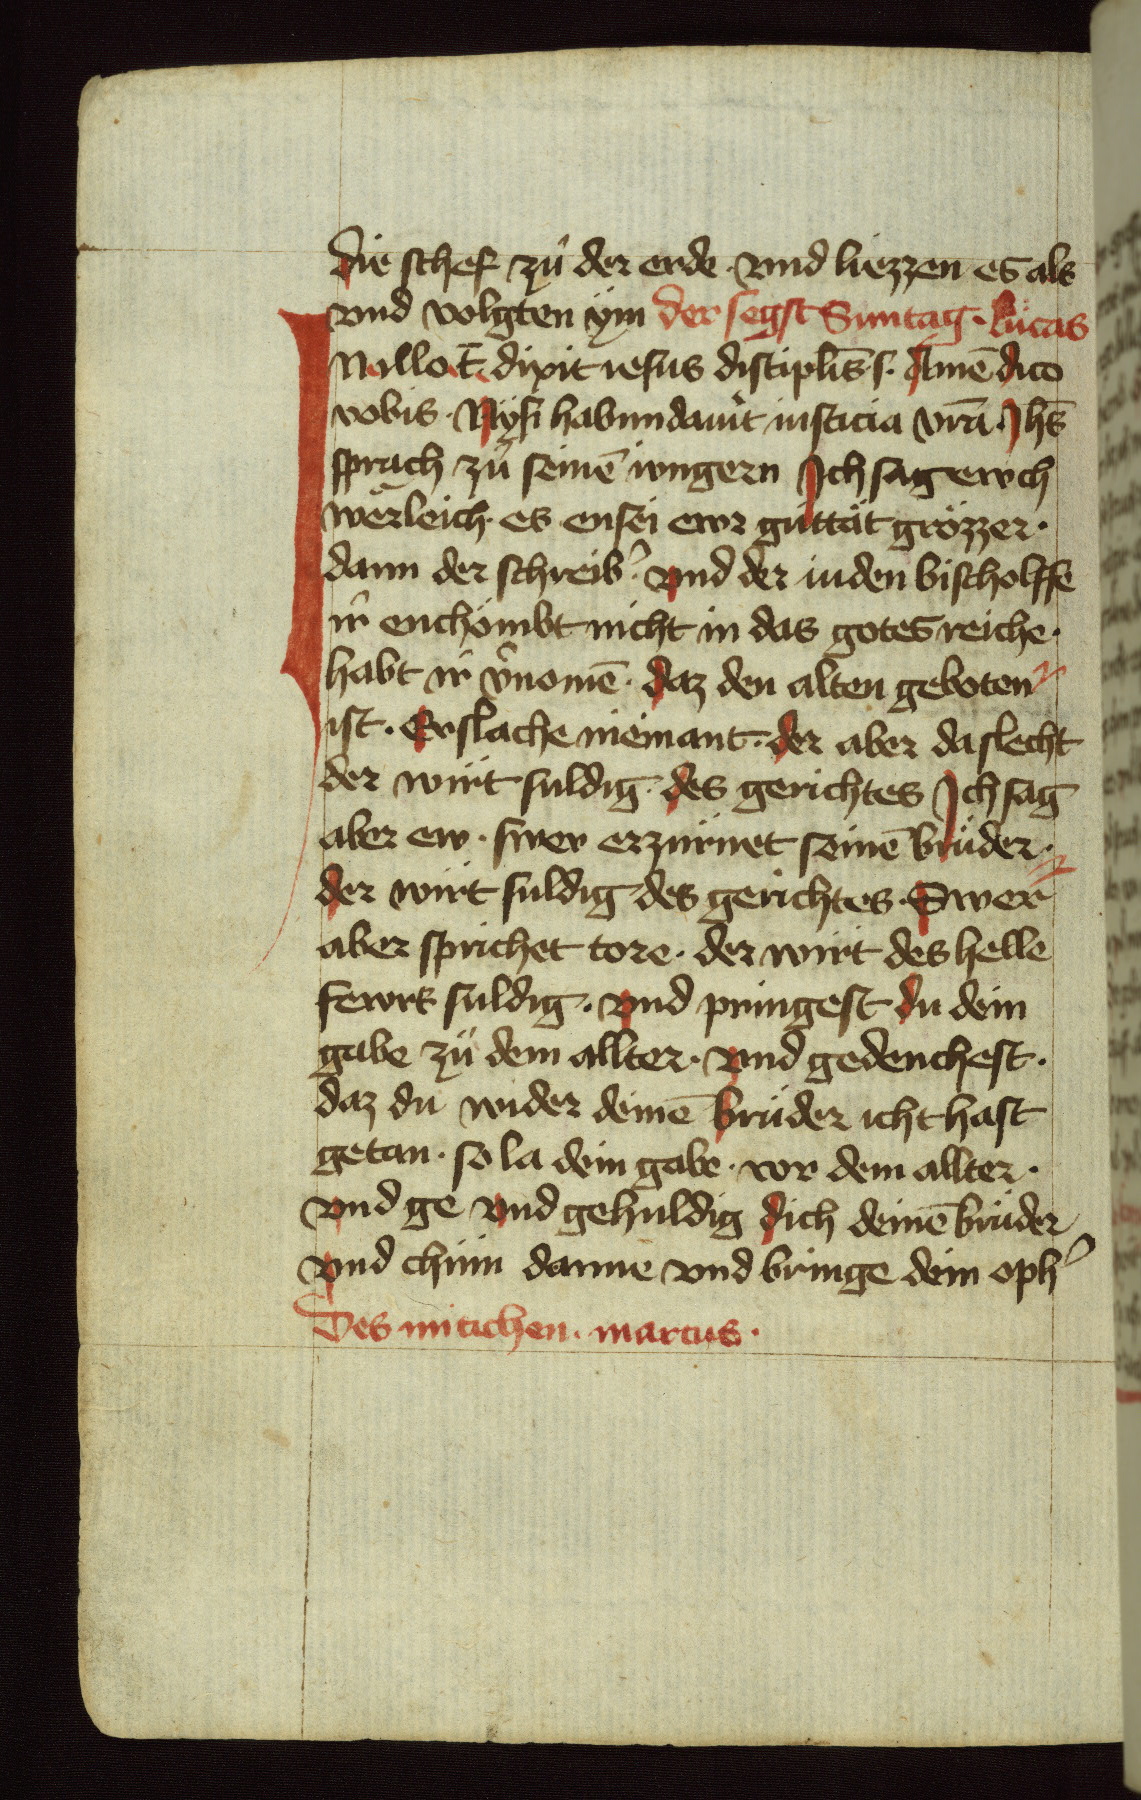 die schef zů der erde · vnd liezzen es als
vnd volgten ÿm der segst Suntag · Lucas
In illo t̄. dixit iesus discipulis s̄. Amē dico
vobis · Nysi habundauit iusticia vrā · Jhs̄
sprach zů seinē iungern Ich sag ewch
wërleich · es ensei ewr güttät grözzer ·
dann der schreib͛ · vnd der iuden bischolffe
ir enchömbt nicht in das gotes reiche ·
habt ir v͛nomē · daz den alten geboten
ist · Erslache niemant · der aber da slecht
der wirt suldig · des gerichtes Ich sag
aber ew · swer erzürnet seinē brüder ·
der wirt suldig des gerichtes · Swer
aber sprichet tore · der wirt des helle
fewrs suldig · vnd pringest du dein
gabe zů dem allter · vnd gedenchest ·
daz du wider deinē brüder icht hast
getan · so la dein gabe · vor dem allter ·
vnd ge vnd gehuldig dich deinē brüder
vnd chüm danne vnd bringe dein oph͛
Des mitichen · marcus ·